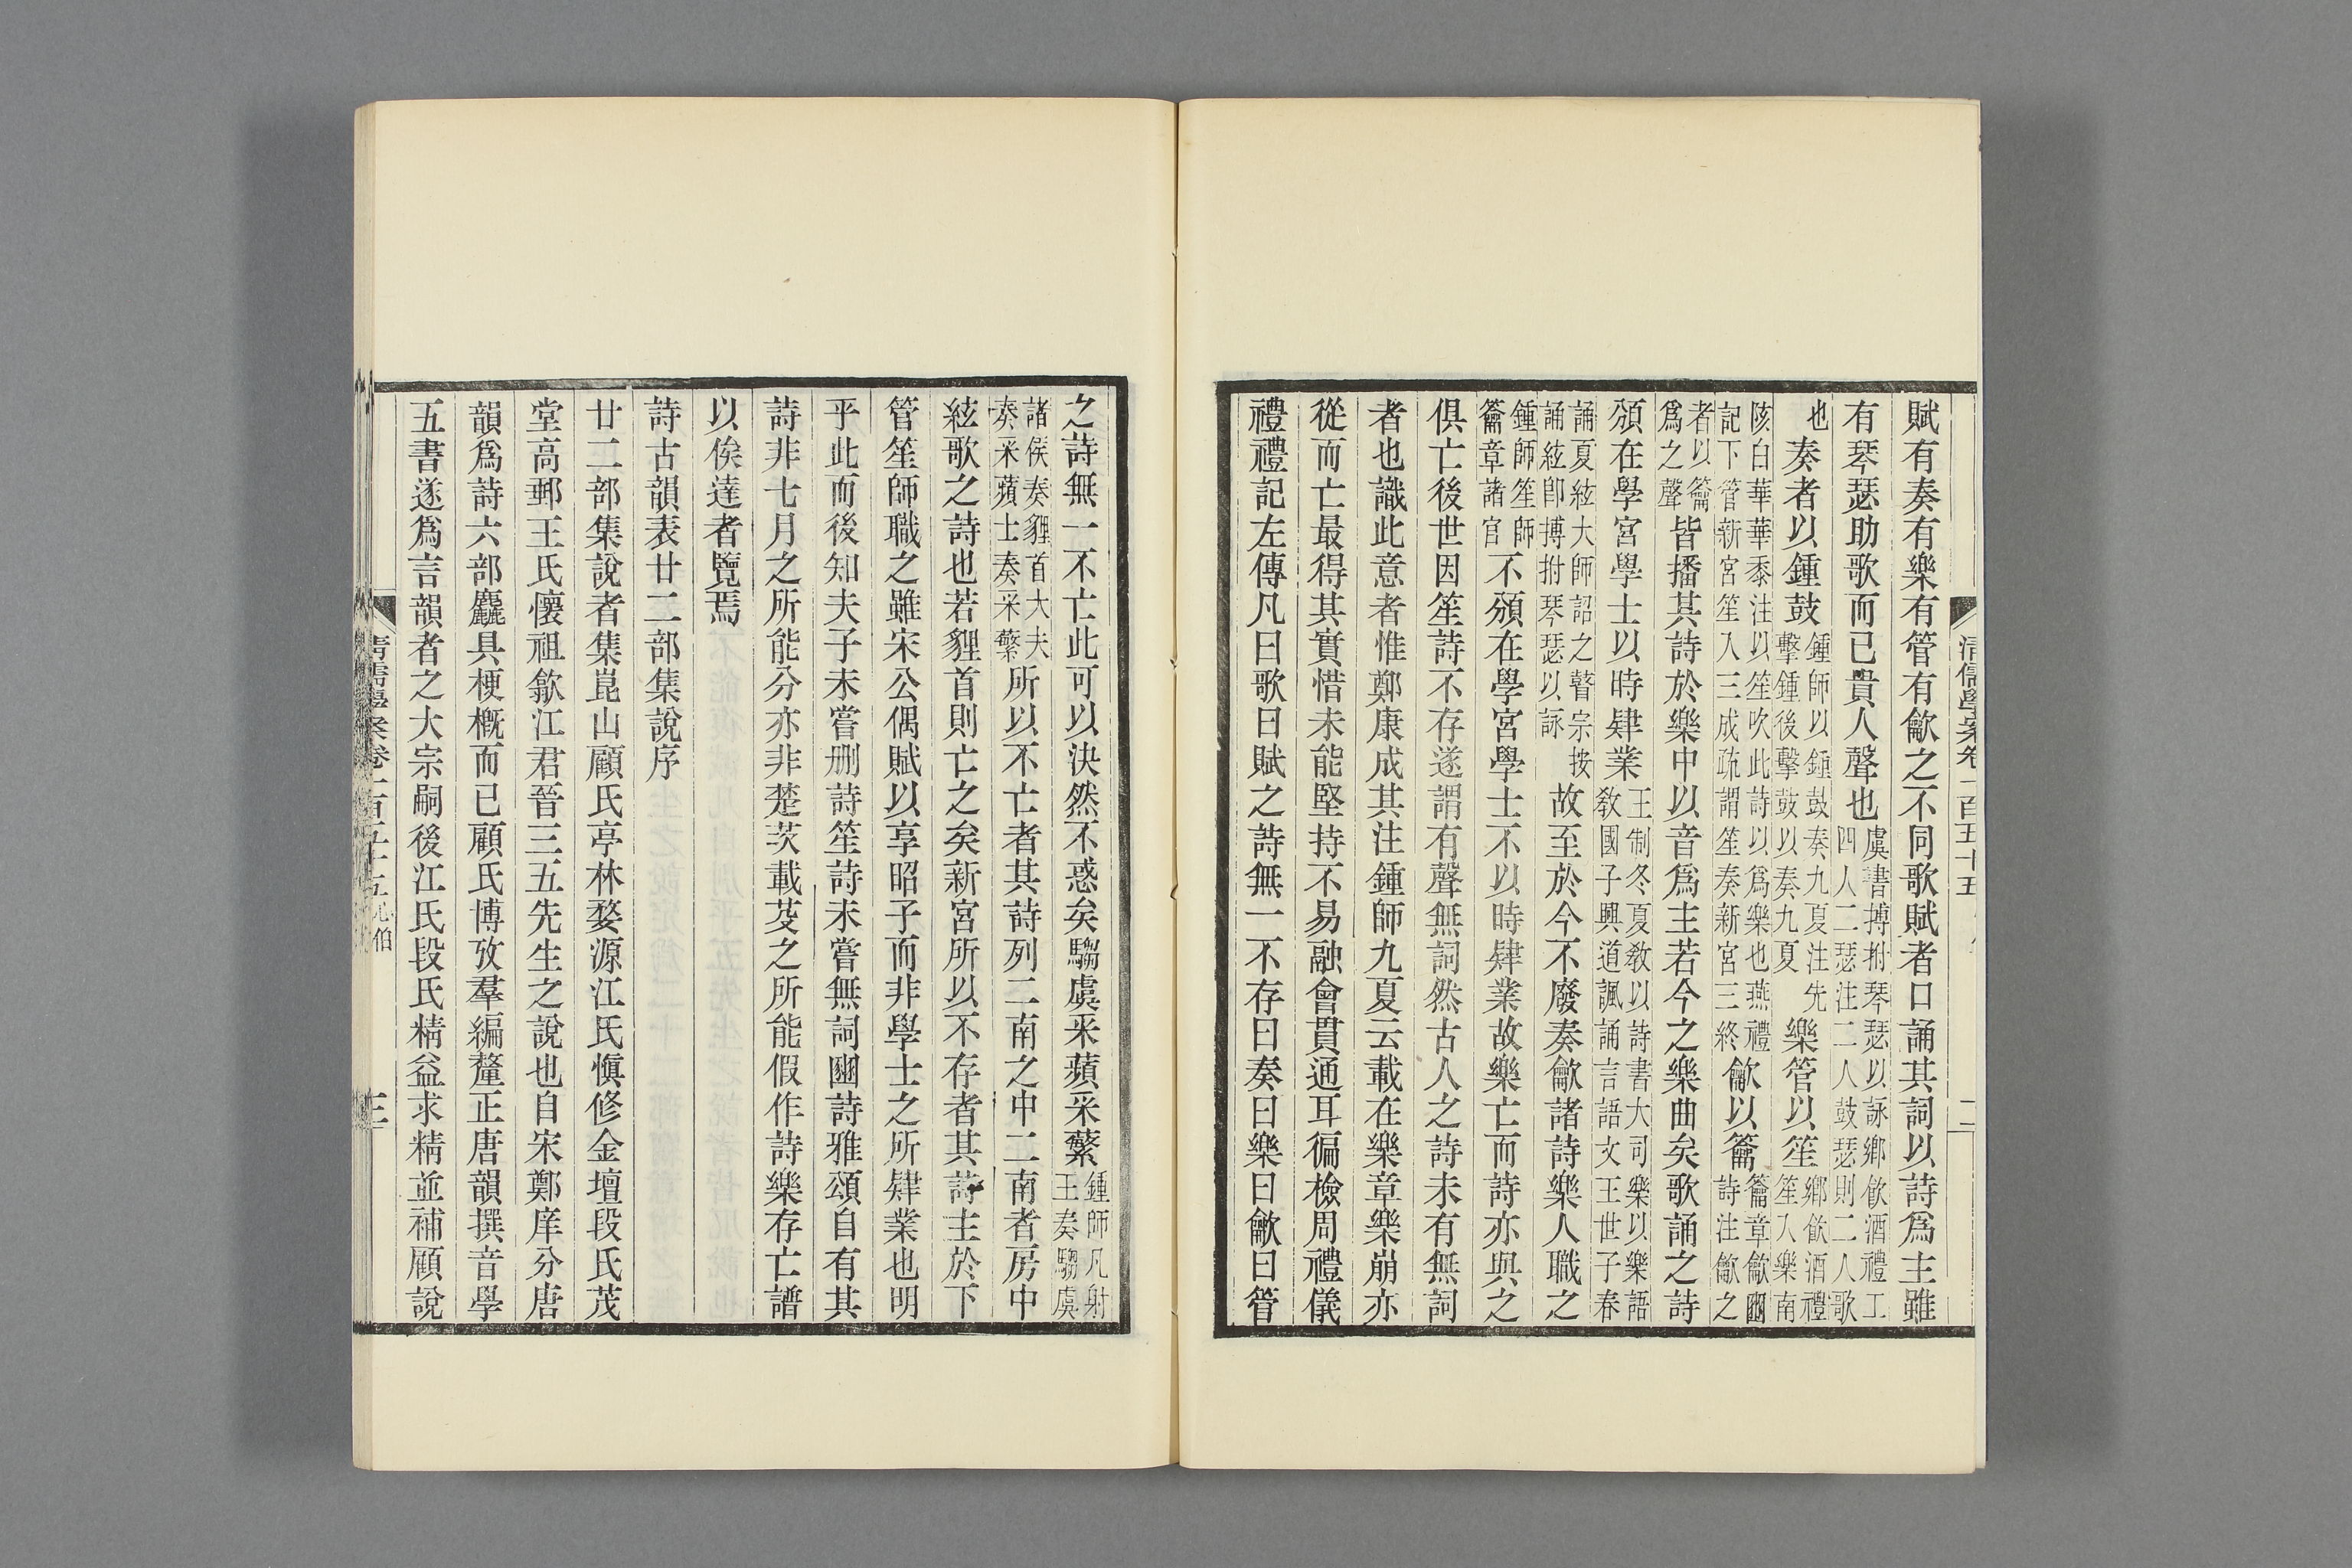 清儒學案卷一百五十五
二
賦有奏有樂有管有龡之不同歌賦者口誦其詞以詩爲主雖
有琴瑟助歌而已貴人聲也虞書搏拊琴瑟以詠鄉飲酒禮工四人二瑟注二人鼓瑟則二人歌
也奏者以鍾鼓鍾師以鍾鼓奏九夏注先擊鍾後擊鼓以奏九夏樂管以笙鄉飲酒禮笙入樂南
陔白華華黍注以笙吹此詩以爲樂也燕禮記下管新宮笙入三成疏謂笙奏新宮三終龡以籥籥章龡豳詩注龡之
者以籥爲之聲皆播其詩於樂中以音爲主若今之樂曲矣歌誦之詩
頒在學宮學士以時肄業王制冬夏敎以詩書大司樂以樂語敎國子興道諷誦言語文王世子春
誦夏絃大師詔之瞽宗按誦絃卽搏拊琴瑟以詠故至於今不廢奏龡諸詩樂人職之
鍾師笙師籥章諸官不頒在學宮學士不以時肄業故樂亡而詩亦與之
俱亡後世因笙詩不存遂謂有聲無詞然古人之詩未有無詞
者也識此意者惟鄭康成其注鍾師九夏云載在樂章樂崩亦
從而亡最得其實惜未能堅持不易融會貫通耳徧檢周禮儀
禮禮記左傳凡曰歌曰賦之詩無一不存曰奏曰樂曰龡曰管
之詩無一不亡此可以決然不惑矣騶虞采蘋采蘩鍾師凡射王奏騶虞
諸侯奏貍首大夫奏采蘋士奏采蘩所以不亡者其詩列二南之中二南者房中
絃歌之詩也若貍首則亡之矣新宮所以不存者其詩主於下
管笙師職之雖宋公偶賦以享昭子而非學士之所肄業也明
乎此而後知夫子未嘗刪詩笙詩未嘗無詞豳詩雅頌自有其
詩非七月之所能分亦非楚茨載芟之所能假作詩樂存亡譜
以俟達者覽焉
詩古韻表廿二部集說序
廿二部集說者集崑山顧氏亭林婺源江氏愼修金壇段氏茂
堂高郵王氏懷祖歙江君晉三五先生之說也自宋鄭庠分唐
韻爲詩六部麤具梗概而已顧氏博攷羣編釐正唐韻撰音學
五書遂爲言韻者之大宗嗣後江氏段氏精益求精並補顧說
清儒學案卷一百五十五 心伯
三